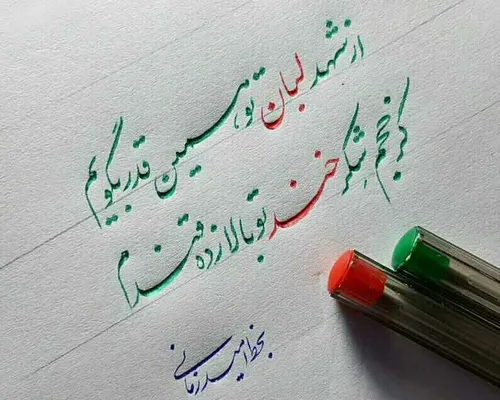 از شهد لبان تو همین قدر بگویم
کز حجم شکر خند تو بالا زده قندم
بخط امید زمانی